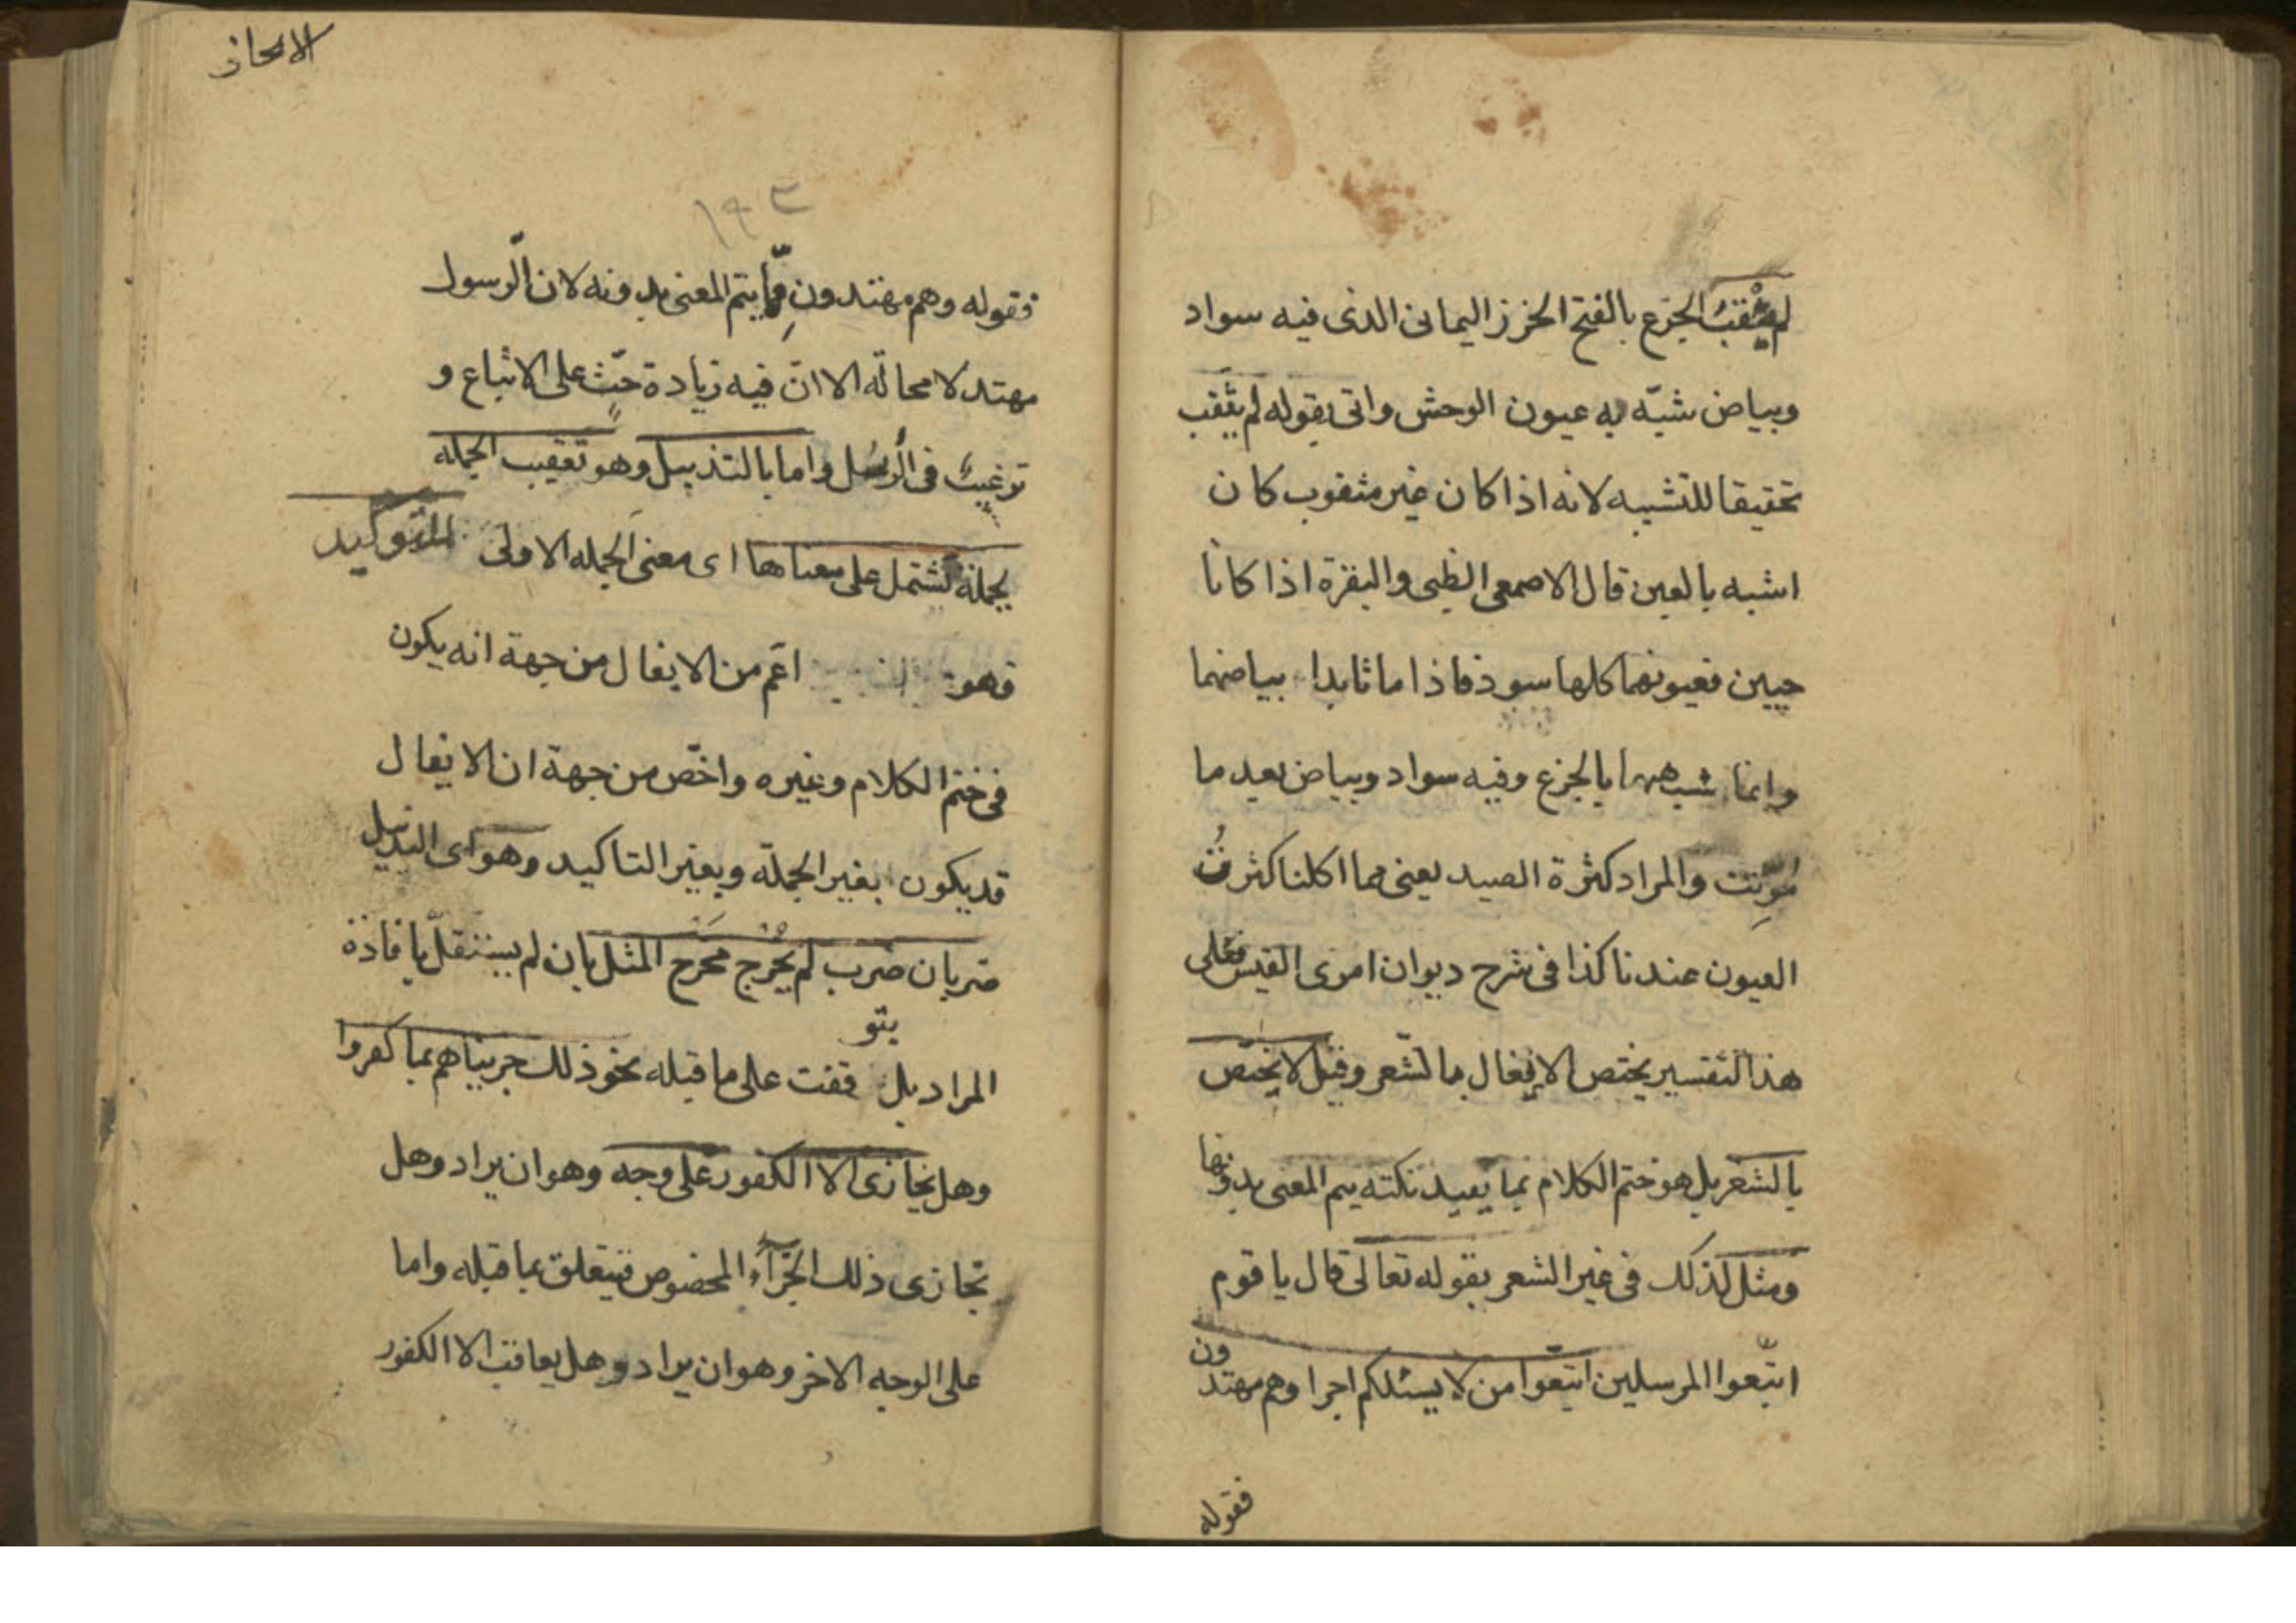 لم يثقب الجزع بالفتح الخرز اليمانى الذى فيه سواد
وبياض شبّه به عيون الوحش واتى بقوله لم يثقب
تحقيقا للتشبيه لانه اذا كان غير مثقوب كان
اشبه بالعين قال الاصمعى الظبى والبقرة اذا كانا
حيين فعيونهما كلها سود فاذا ماتا بدا بياضهما
وانما شبهها بالجزع وفيه سواد وبياض بعد ما
موّتت والمراد كثرة الصيد يعنى مما اكلنا كثرت
العيون عندنا كذا فى شرح ديوان امرى القيس فعلى
هذا التفسير يختص الايغال بالشعر وقيل لا يختص
بالشعر بل هو ختم الكلام بما يفيد نكته يتم المعنى بدونها
ومثل لذلك فى غير الشعر بقوله تعالى قال يا قوم
اتبعوا المرسلين اتبعوا من لا يسئلكم اجرا وهم مهتدون
فقوله
الايجاز
١٩٣
فقوله وهم مهتدون ممّا يتم المعنى بدونه لان الرسول
مهتد لا محالة الا انّ فيه زيادة حثٍّ على الاتباع و
ترغيب فى الرسل واما بالتذييل وهو تعقيب الجمله
بجملة تشتمل على معناها اى معنى الجمله الاولى للتوكيد
فهو اعم من الايغال من جهة انه يكون
فى ختم الكلام وغيره واخص من جهة ان الايغال
قد يكون بغير الجملة وبغير التاكيد وهو اى التذييل
ضربان ضرب لم يخرج مخرج المثل بان لم يستقلّ بافادة
المراد بل يتوقفت على ما قبله نحو ذلك جزيناهم بما كفروا
وهل يجازى الا الكفور على وجه وهو ان يراد وهل
تجازى ذلك الجزآء المخصوص فيتعلق بما قبله واما
على الوجه الاخر وهو ان يراد وهل يعاقب الا الكفور